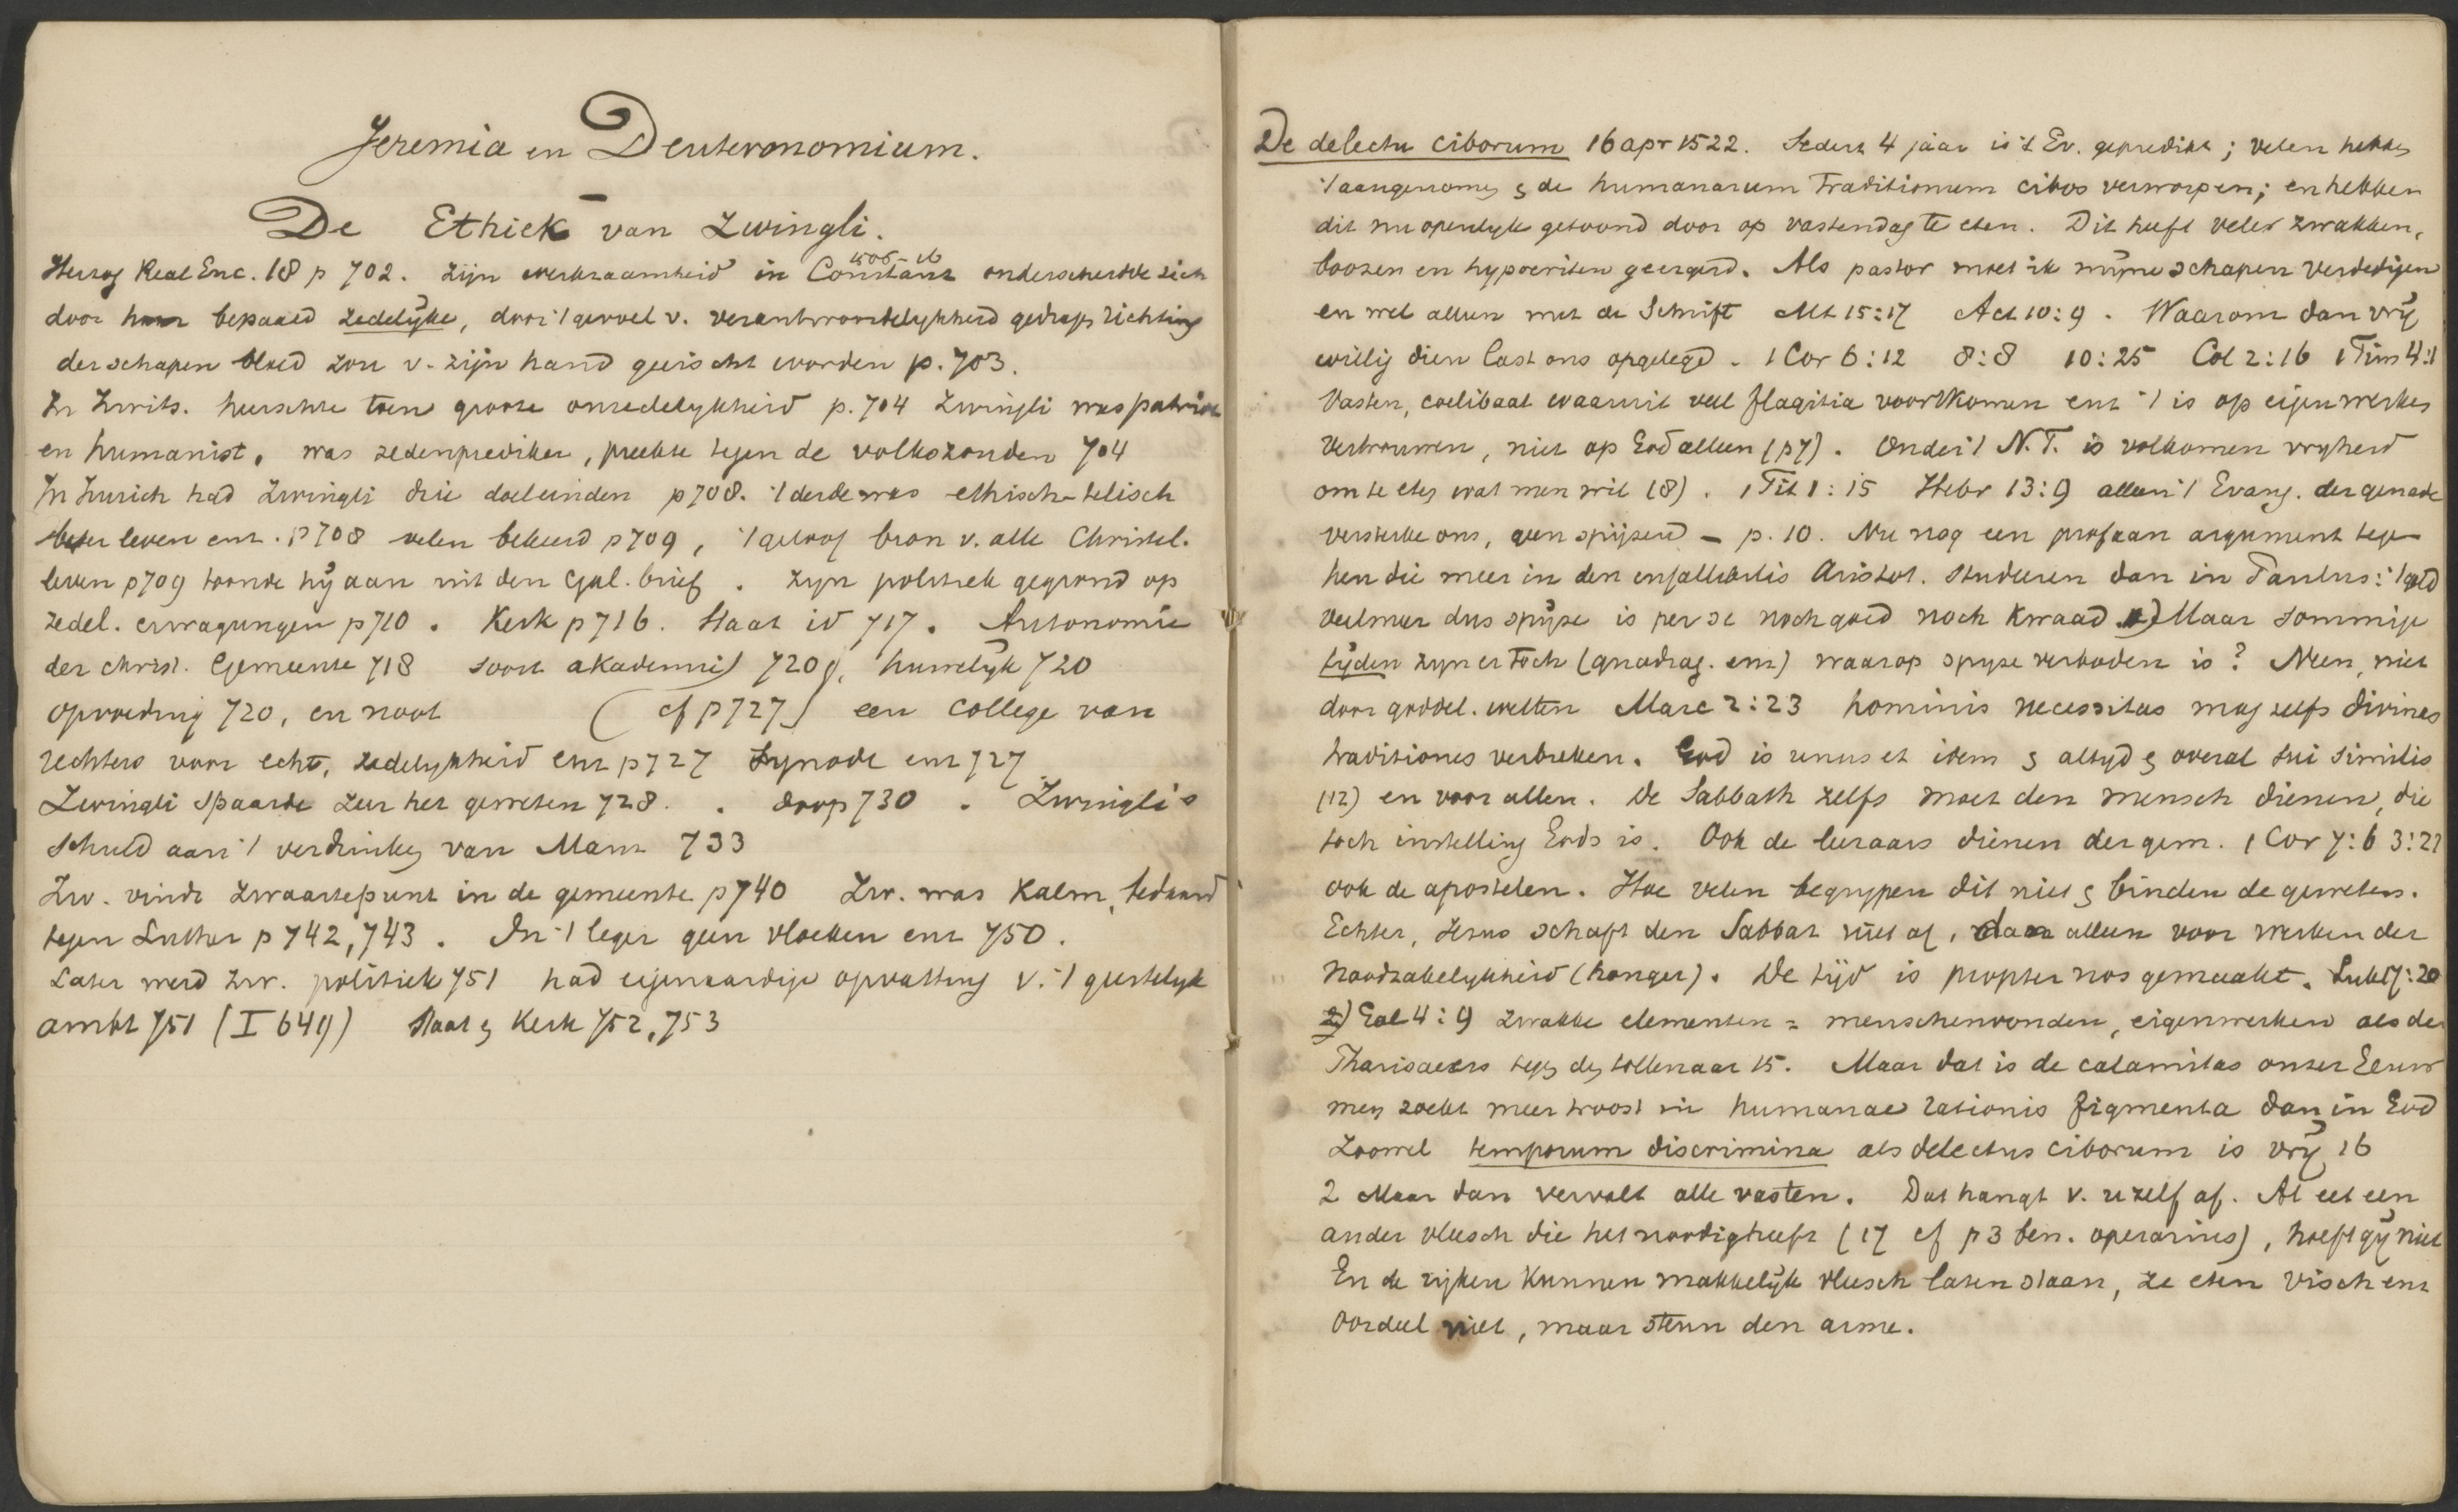 Jeremia en Deuteronomium.
De Ethiek van Zwingli.
1506-16
Herzog Real Enc. 18 p 702. zijn werkzaamheid in Constanz onderscheidde zich
door haar bepaald zedelijke, door 't gevoel v. verantwoordelijkheid gedragen richting
der schapen bloed zou v. zijn hand geeischt worden p. 703.
In Zwits. heerschte toen groote onzedelykheid p. 704 Zwingli was patriot
en humanist, was zedenprediker, preekte tegen de volkszonden 704
In Zurich had Zwingli drie doeleinden p 708. 't derde was ethisch-
beter leven enz. p 708 velen bekeerd p 709, 't geloof bron v. alle Christel.
leven p 709 toonde hij aan uit den Gal. brief. Zijn politiek gegrond op
zedel. overwegingen p 710. Kerk p 716. Staat id 717. Autonomie
der christ. Gemeente 718 soort akademie 720, huwelijk 720
opvoeding 720, en noot (cf p 727) een college van
rechters voor echt, zedelykheid enz p 727 Synode enz 727
Zwingli spaarde zeer het geweten 728. doop 730. Zwingli's
schuld aan 't verdrinken van Manz 733
Zw. vindt zwaartepunt in de gemeente p 740 Zw. was kalm, bedaard
tegen Luther p 742, 743. In 't leger geen vloeken enz 750.
Later werd Zw. politiek 751 had eigenaardige opvatting v. 't geestelyk
ambt 751 (I 649) Staat & Kerk 752, 753
De delectu ciborum 16 apr 1522. Sedert 4 jaar is 't Ev. gepredikt; velen hebben
't aangenomen & de humanarum traditionum cibos verworpen; en hebben
dit nu openlyk getoond door op vastendag te eten. Dit heeft velen zwakken,
boozen en hypocriten geergerd. Als pastor moet ik mijne schapen verdedigen
en wel alleen met de Schrift Mt 15:17 Act 10:9. Waarom dan vrij
willig dien last ons opgelegd. 1 Cor 6:12 8:8 10:25 Col 2:16 1 Tim 4:1
Vasten, coelibaat waaruit veel flagitia voortkomen enz 't is op eigen werken
vertrouwen, niet op God alleen (p 7). Onder 't N.T. is volkomen vryheid
om te eten wat men wil (8). Tit 1:15 Hebr 13:9 alleen 't Evang. der genade
versterke ons, geen spijzen - p. 10. Nu nog een profaan argument tegen
hen die meer in den Aristot. studeeren dan in Paulus: 't geld
veelmeer dus spijze is per se noch goed noch kwaad. Maar sommige
tijden zyn er toch (quadrag. enz) waarop spyze verboden is? Neen, niet
door goddel. wetten Marc 2:23 hominis necessitas mag zelfs divines
traditiones verbreken. God is unus et idem & altyd & overal sui similis
(12) en voor allen. De Sabbath zelfs moet den mensch dienen, die
toch instelling Gods is. Ook de leeraars dienen der gem. 1 Cor 7:6 3:22
ook de apostelen. Hoe velen begrypen dit niet & binden de gewetens.
Echter, Jezus schaft den Sabbat niet af, dan alleen voor werken der
noodzakelykheid (honger). De tijd is propter nos gemaakt. Luk 17:20
2) Gal 4:9 zwakke elementen = menschenvonden, eigen werken als de
Pharisaeers tegen den tollenaar 15. Maar dat is de calamitas onzer Eeuw
men zoekt meer troost in humanae rationis figmenta dan in God
Zoowel temporum discrimina als delectus ciborum is vrij 16
2 Maar dan vervalt alle vasten. Dat hangt v. u zelf af. Al eet een
ander vleesch die het noodig heeft (17 cf p 3 ben. operarius), hoeft gij niet
En de rijken kunnen makkelijk vleesch laten staan, ze eten visch enz
Oordeel niet, maar steun den arme.